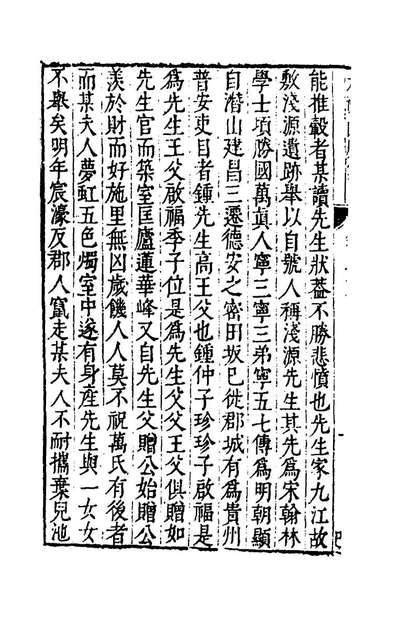 能推轂者某讀先生狀蓋不勝悲憤也先生家九江故
敷淺源遺跡舉以自號人稱淺源先生其先為宋翰林
學士頃勝國萬眞人寧三寧三弟寧五七傳為明朝顯
自潛山建昌三遷德安之密田坂已徙郡城有為貴州
普安吏目者鍾先生高王父也鍾仲子珍珍子啟福是
為先生王父啟福季子位是為先生父父王父俱贈如
先生官而築室匡廬蓮華峰又自先生父贈公始贈公
羡於財而好施里無凶歲饑人人莫不祝萬氏有後者
而某夫人夢虹五色燭室中遂有身產先生與一女女
不舉矣明年宸濠反郡人竄走某夫人不耐攜棄兒池